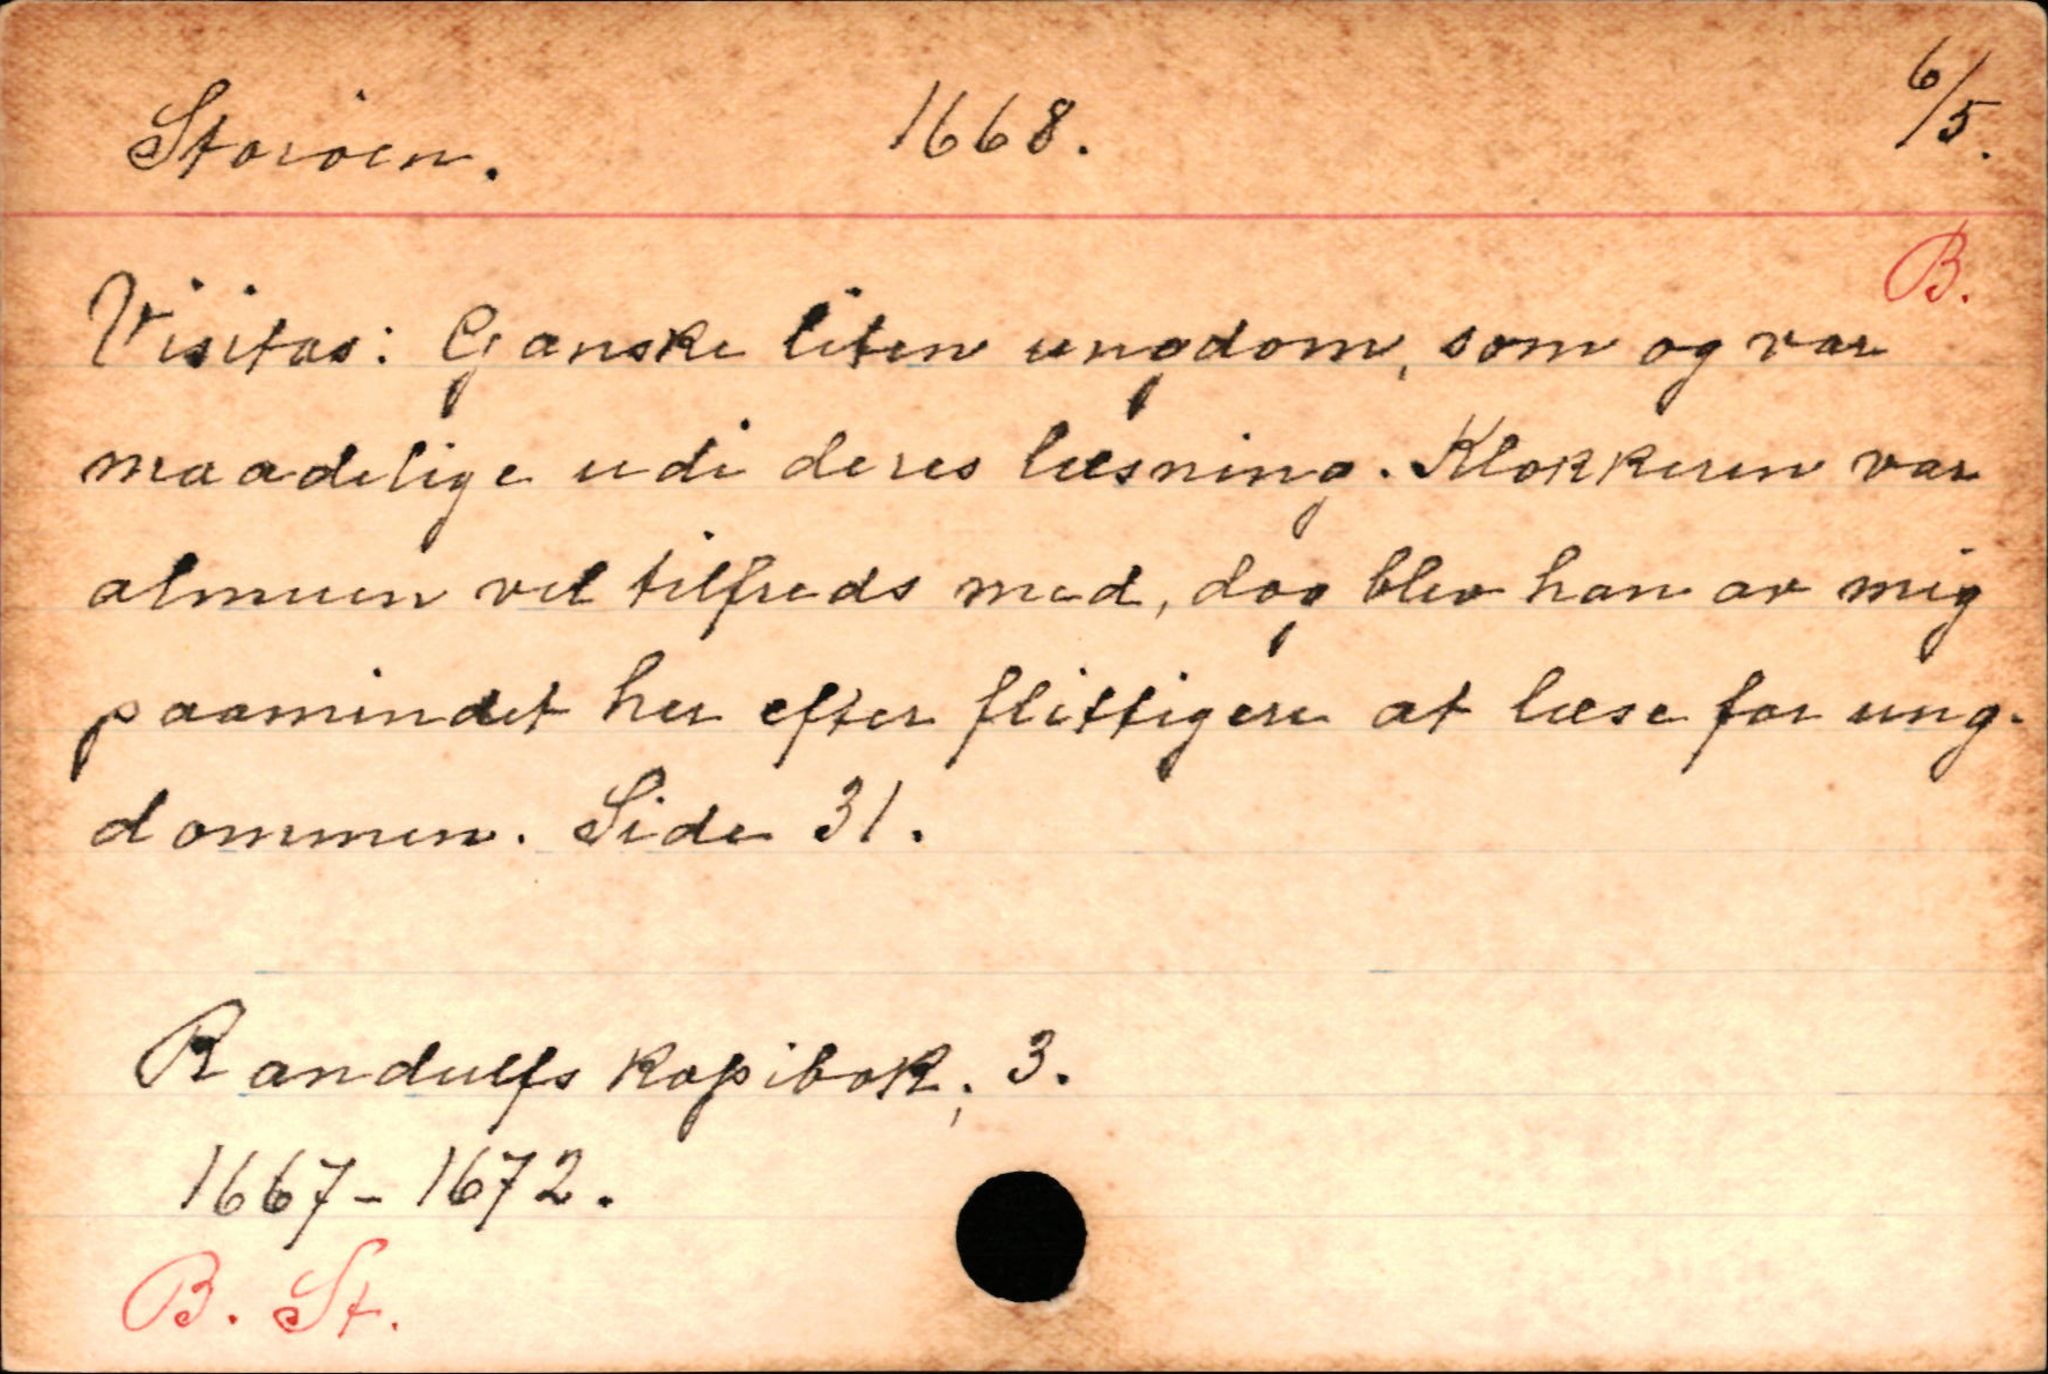 Storöen. 1668. 6/5.
B.
Visitas: Ganske liten ungdom, som og var
maadelige udi deres læsning. Klokkeren var
almuen vel tilfreds med, dog blev han av mig
paamindet her efter flittigere at læse for ung-
dommen. Side 31.
Randulfs kopibok; 3.
1667-1672.
B. St.